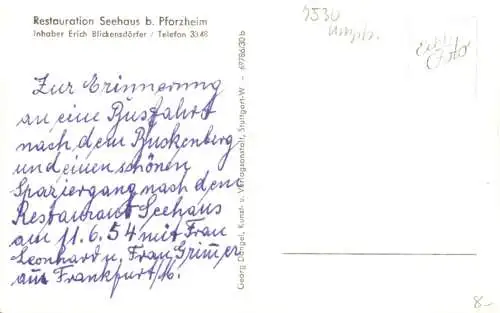 Restauration Seehaus b. Pforzheim
Inhaber Erich Blickensdörfer / Telefon 3348
Zur Erinnerung
an eine Busfahrt
nach dem Buckenberg
und einen schönen
Spaziergang nach dem
Restaurant Seehaus
am 11.6.54 mit Frau
Leonhard u. Frau Grimmer
aus Frankfurt/M.
Georg Dangel, Kunst- u. Verlagsanstalt, Stuttgart-W - 69786/30 b
7530
Echt Foto
8-